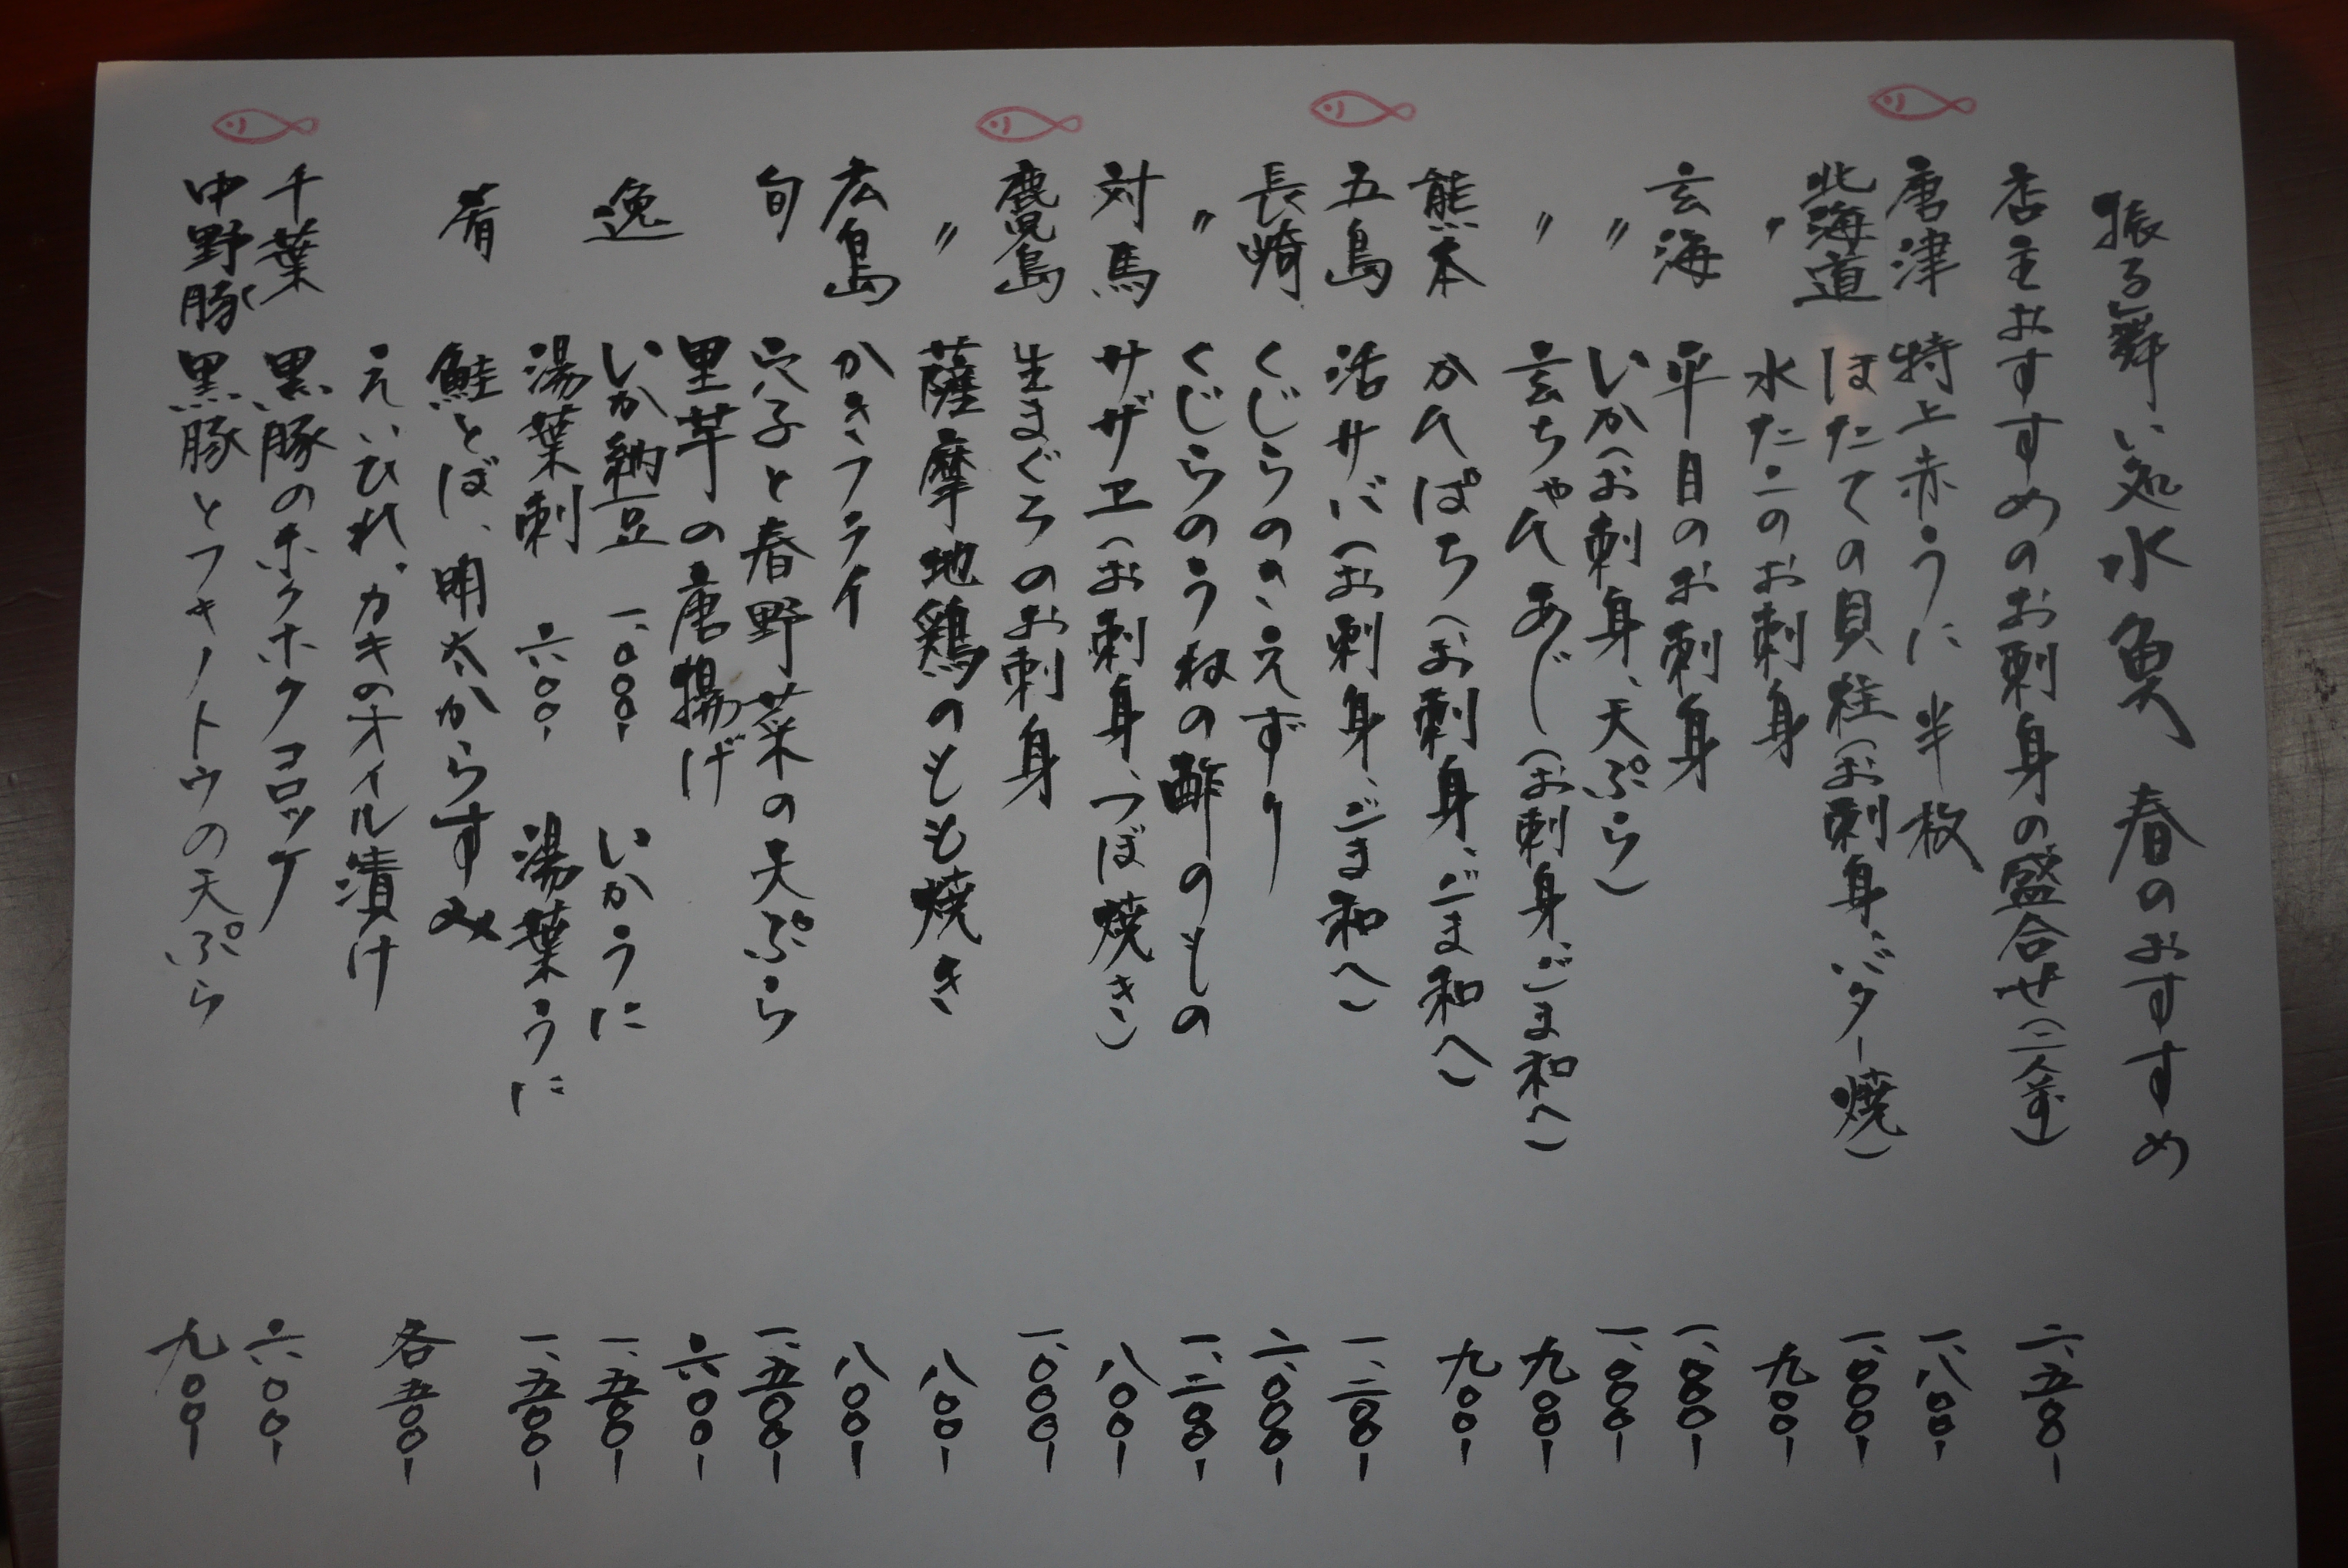 振る舞い処 水魚 春のおすすめ
店主おすすめのお刺身の盛合せ(二人前) 二、五〇〇ー
唐津 特上赤うに 半枚 一、八〇〇ー
北海道 ほたての貝柱(お刺身、バター焼) 一、〇〇〇ー
〃 水たこのお刺身 九〇〇ー
玄海 平目のお刺身 一、〇〇〇ー
〃 いか(お刺身、天ぷら) 一、〇〇〇ー
〃 玄ちゃんあじ(お刺身、ごま和へ) 九〇〇ー
熊本 かんぱち(お刺身、ごま和へ) 九〇〇ー
五島 活サバ(お刺身、ごま和へ) 一、二〇〇ー
長崎 くじらのさえずり 二、〇〇〇ー
〃 くじらのうねの酢のもの 一、二〇〇ー
対馬 サザエ(お刺身、つぼ焼き) 八〇〇ー
鹿児島 生まぐろのお刺身 一、〇〇〇ー
〃 薩摩地鶏のもも焼き 八〇〇ー
広島 かきフライ 八〇〇ー
旬 穴子と春野菜の天ぷら 一、五〇〇ー
里芋の唐揚げ 六〇〇ー
逸 いか納豆 一、〇〇〇ー いかうに 一、五〇〇ー
湯葉刺 六〇〇ー 湯葉うに 一、五〇〇ー
肴 鮭とば、明太からすみ
えいひれ、カキのオイル漬け 各五〇〇ー
千葉 黒豚のホクホクコロッケ 六〇〇ー
中野豚 黒豚とフキノトウの天ぷら 九〇〇ー